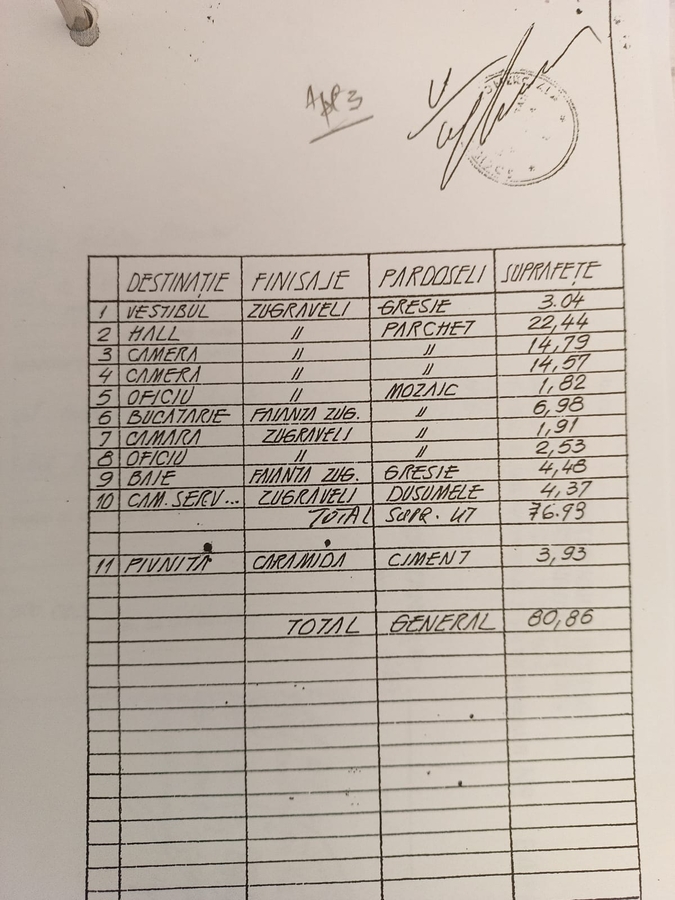 Ap 3
DESTINAȚIE FINISAJE PARDOSELI SUPRAFEȚE
1 VESTIBUL ZUGRAVELI GRESIE 3.04
2 HALL // PARCHET 22,44
3 CAMERA // // 14,79
4 CAMERA // // 14,57
5 OFICIU // MOZAIC 1,82
6 BUCATARIE FAIANTA ZUG. // 6,98
7 CAMARA ZUGRAVELI // 1,91
8 OFICIU // // 2,53
9 BAIE FAIANTA ZUG. GRESIE 4,48
10 CAM. SERV... ZUGRAVELI DUSUMELE 4,37
TOTAL SUPR. UT 76.93
11 PIVNITA CARAMIDA CIMENT 3,93
TOTAL GENERAL 80,86